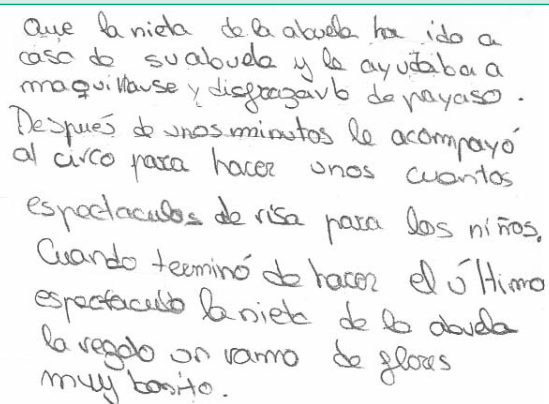 Que la nieta de la abuela ha ido a
casa de su abuela y le ayudaba a
maquillause y disfrazavlo de payaso.
Después de unos minutos le acompayó
al circo para hacer unos cuantos
espectaculos de risa para los niños.
Cuando terminó de hacer el último
espectaculo la nieta de la abuela
la regalo un ramo de flores
muy bonito.